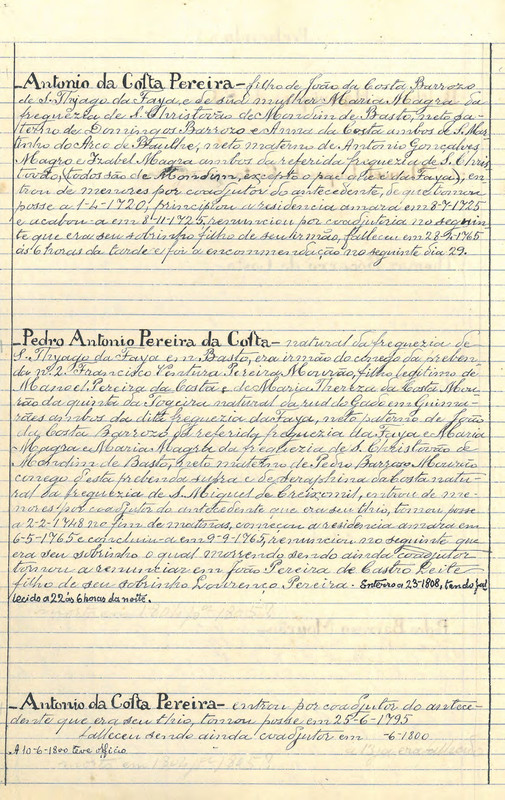 Antonio da Costa Pereira – filho de João da Costa Barrozo
de S. Thyago da Faya, e de sua mulher Maria Magra da
freguezia de S. Christovão de Mondim de Basto, neto pa-
terno de Domingos Barrozo e Anna da Costa ambos de S. Mar
tinho do Arco de Baulhe, neto materno de Antonio Gonçalves
Magro e Izabel Magra ambos da referida freguezia de S. Chris
tovão, (todos são de Mondim, excepto o pae que é da Faya), en
trou de menores por coadjutor do antecedente, de que tomou
posse a 1-4-1720, principiou a residencia amara em 8-7-1725
e acabou-a em 8-11-1725, renunciou por coadjutoria no seguin
te que era seu sobrinho filho de seu irmão, falleceu em 28-5-1765
ás 6 horas da tarde e foi a encommendação no seguinte dia 29.
Pedro Antonio Pereira da Costa – natural da freguezia de
S. Thyago da Faya em Basto, era irmão do conego da preben
da nº 2. Francisco Ventura Pereira Mourão, filho legitimo de
Manoel Pereira da Costa e de Maria Thereza da Costa Mou
rão da quinta da Toreira natural da rua do Gado em Guima
rães ambos da ditta freguezia da Faya, neto paterno de João
da Costa Barrozo da referida freguezia da Faya e Maria
Magra e Maria Magra da freguezia de S. Christovão de
Mondim de Basto, neto materno de Pedro Barrozo Mourão
conego d'esta prebenda supra e de Seraphina da Costa natu-
ral da freguezia de S. Miguel de Creixomil, entrou de me
nores por coadjutor do antecedente que era seu thio, tomou posse
a 2-2-1748 no fim de matinas, começou a residencia amara em
6-5-1765 e concluiu-a em 9-9-1765, renunciou no seguinte que
era seu sobrinho o qual morrendo sendo ainda coadjutor
tornou a renunciar em João Pereira de Castro Leite
filho de seu sobrinho Lourenço Pereira. Enterro a 23-1808, tendo fal
lecido a 22 ás 6 horas da noite.
Antonio da Costa Pereira – entrou por coadjutor do antece-
dente que era seu thio, tomou posse em 25-6-1795
Falleceu sendo ainda coadjutor em -6-1800
A 10-6-1800 teve officio